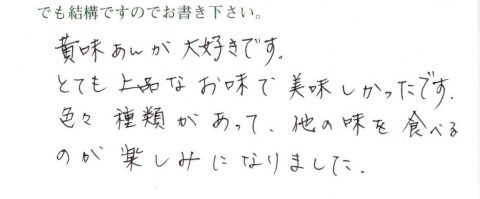 でも結構ですのでお書き下さい。
黄味あんが大好きです.
とても上品なお味で美味しかったです.
色々種類があって、他の味を食べる
のが楽しみになりました.